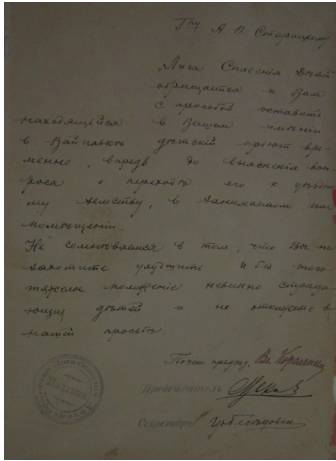 Г-ну А. П. Старицкому
Лига Спасения Детей
обращается к Вам
с просьбой оставить
находящийся в Вашем имении
в детский приют вре-
менно, впредь до выяснения воп-
роса о переходе его к уездно-
му земству, в занимаемом им
помещении.
Не сомневаемся в том, что Вы не
захотите ухудшить и без того
тяжелое положение невинно страда-
ющих детей и не откажете в
нашей просьбе.
Почет. председ. Вл. Короленко
Председатель
Секретарь